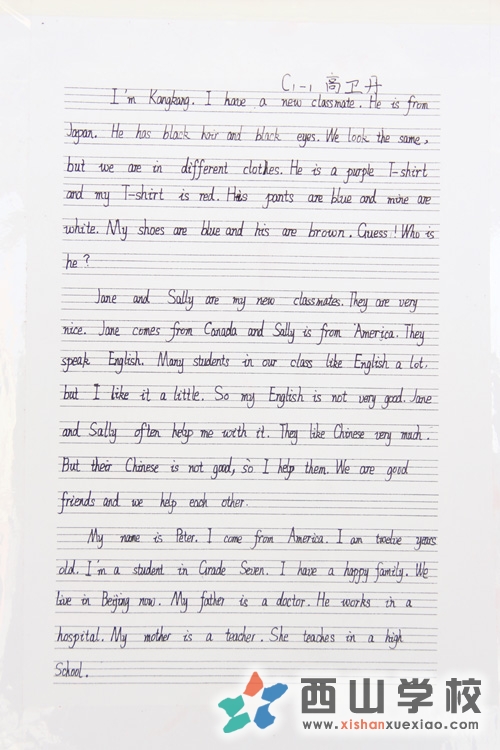 C1-1 高卫丹
I'm Kangkang. I have a new classmate. He is from
Japan. He has black hair and black eyes. We look the same,
but we are in different clothes. He is a purple T-shirt
and my T-shirt is red. His pants are blue and mine are
white. My shoes are blue and his are brown. Guess! Who is
he?
Jane and Sally are my new classmates. They are very
nice. Jane comes from Canada and Sally is from America. They
speak English. Many students in our class like English a lot.
but I like it a little. So my English is not very good. Jane
and Sally often help me with it. They like Chinese very much.
But their Chinese is not good, so I help them. We are good
friends and we help each other.
My name is Peter. I come from America. I am twelve years
old. I'm a student in Grade Seven. I have a happy family. We
live in Beijing now. My father is a doctor. He works in a
hospital. My mother is a teacher. She teaches in a high
School.
西山学校
www.xishanxuexiao.com